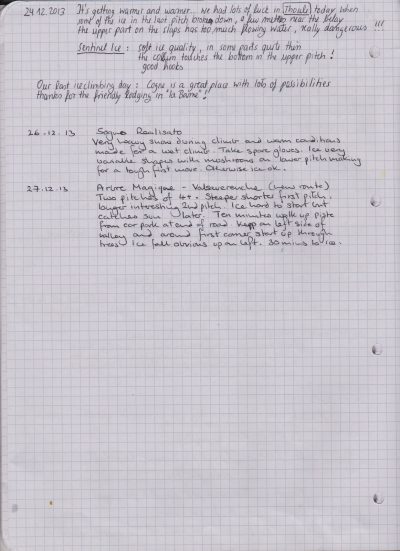 24.12.2013 It's getting warmer and warmer... we had lots of luck in Thoule today when
some of the ice in the last pitch broke down, a few metres near the belay
the upper part on the slaps has too much flowing water, really dangerous !!!
Sentinel Ice : soft ice quality, in some parts quite thin
the column touches the bottom in the upper pitch !
good hooks
Our last iceclimbing day : Cogne is a great place with lots of possibilities
thanks for the friendly lodging in "la Barme" !
26.12.13 Sogno Realisato
Very heavy snow during climb and warm conditions
made for a wet climb. Take spare gloves. Ice very
variable shapes with mushrooms on lower pitch making
for a tough first move. Otherwise ice ok.
27.12.13 Arbre Magique - Valsavarenche (new route)
Two pitches of 4+. Steeper shorter first pitch,
longer interesting 2nd pitch. Ice hard to start but
catches sun later. Ten minutes walk up piste
from car park at end of road keep on left side of
valley and around first corner start up through
trees ice fall obvious up on left. 30 mins to ice.